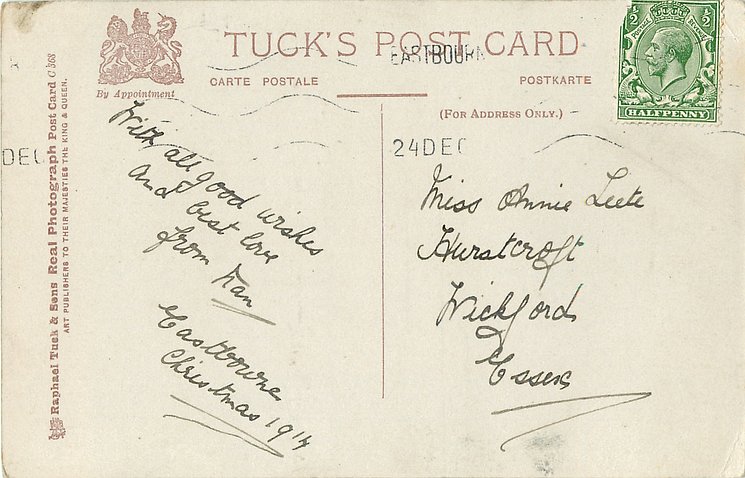 TUCK'S POST CARD
CARTE POSTALE
POSTKARTE
By Appointment
(FOR ADDRESS ONLY.)
EASTBOURN
24 DEC
DEC
½ ½
HALFPENNY
Raphael Tuck & Sons Real Photograph Post Card C 368
ART PUBLISHERS TO THEIR MAJESTIES THE KING & QUEEN.
With all good wishes
and best love
from Nan
Eastbourne
Christmas 1914
Miss Annie Leete
Hurstcroft
Wickford
Essex